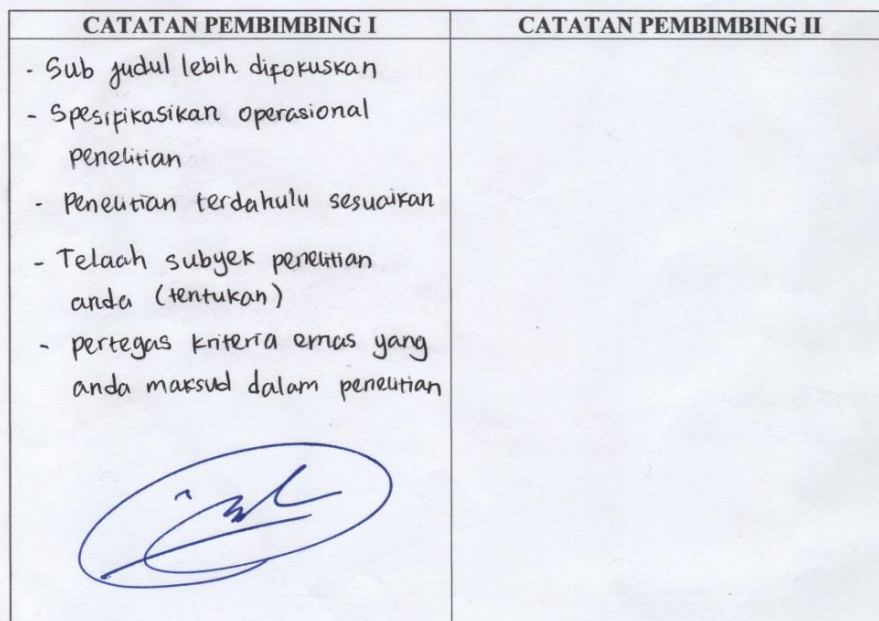 CATATAN PEMBIMBING I
CATATAN PEMBIMBING II
- Sub judul lebih difokuskan
- Spesifikasikan operasional
penelitian
- Penelitian terdahulu sesuaikan
- Telaah subyek penelitian
anda (tentukan)
- pertegas kriteria emas yang
anda maksud dalam penelitian